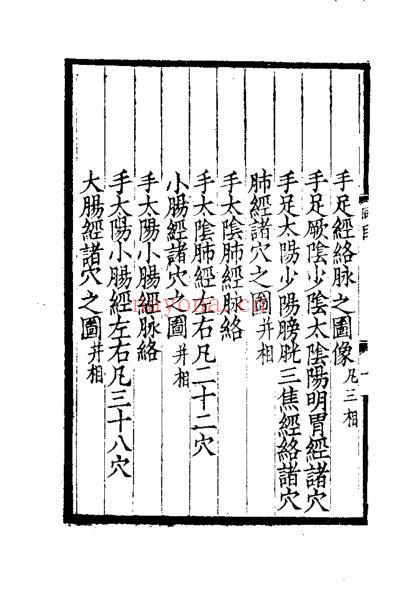 手足經絡脉之圖像凡三相
手足厥陰少陰太陰陽明胃經諸穴
手足太陽少陽膀胱三焦經絡諸穴
肺經諸穴之圖并相
手太陰肺經脉絡
手太陰肺經左右凡二十二穴
小腸經諸穴之圖并相
手太陽小腸經脉絡
手太陽小腸經左右凡三十八穴
大腸經諸穴之圖并相